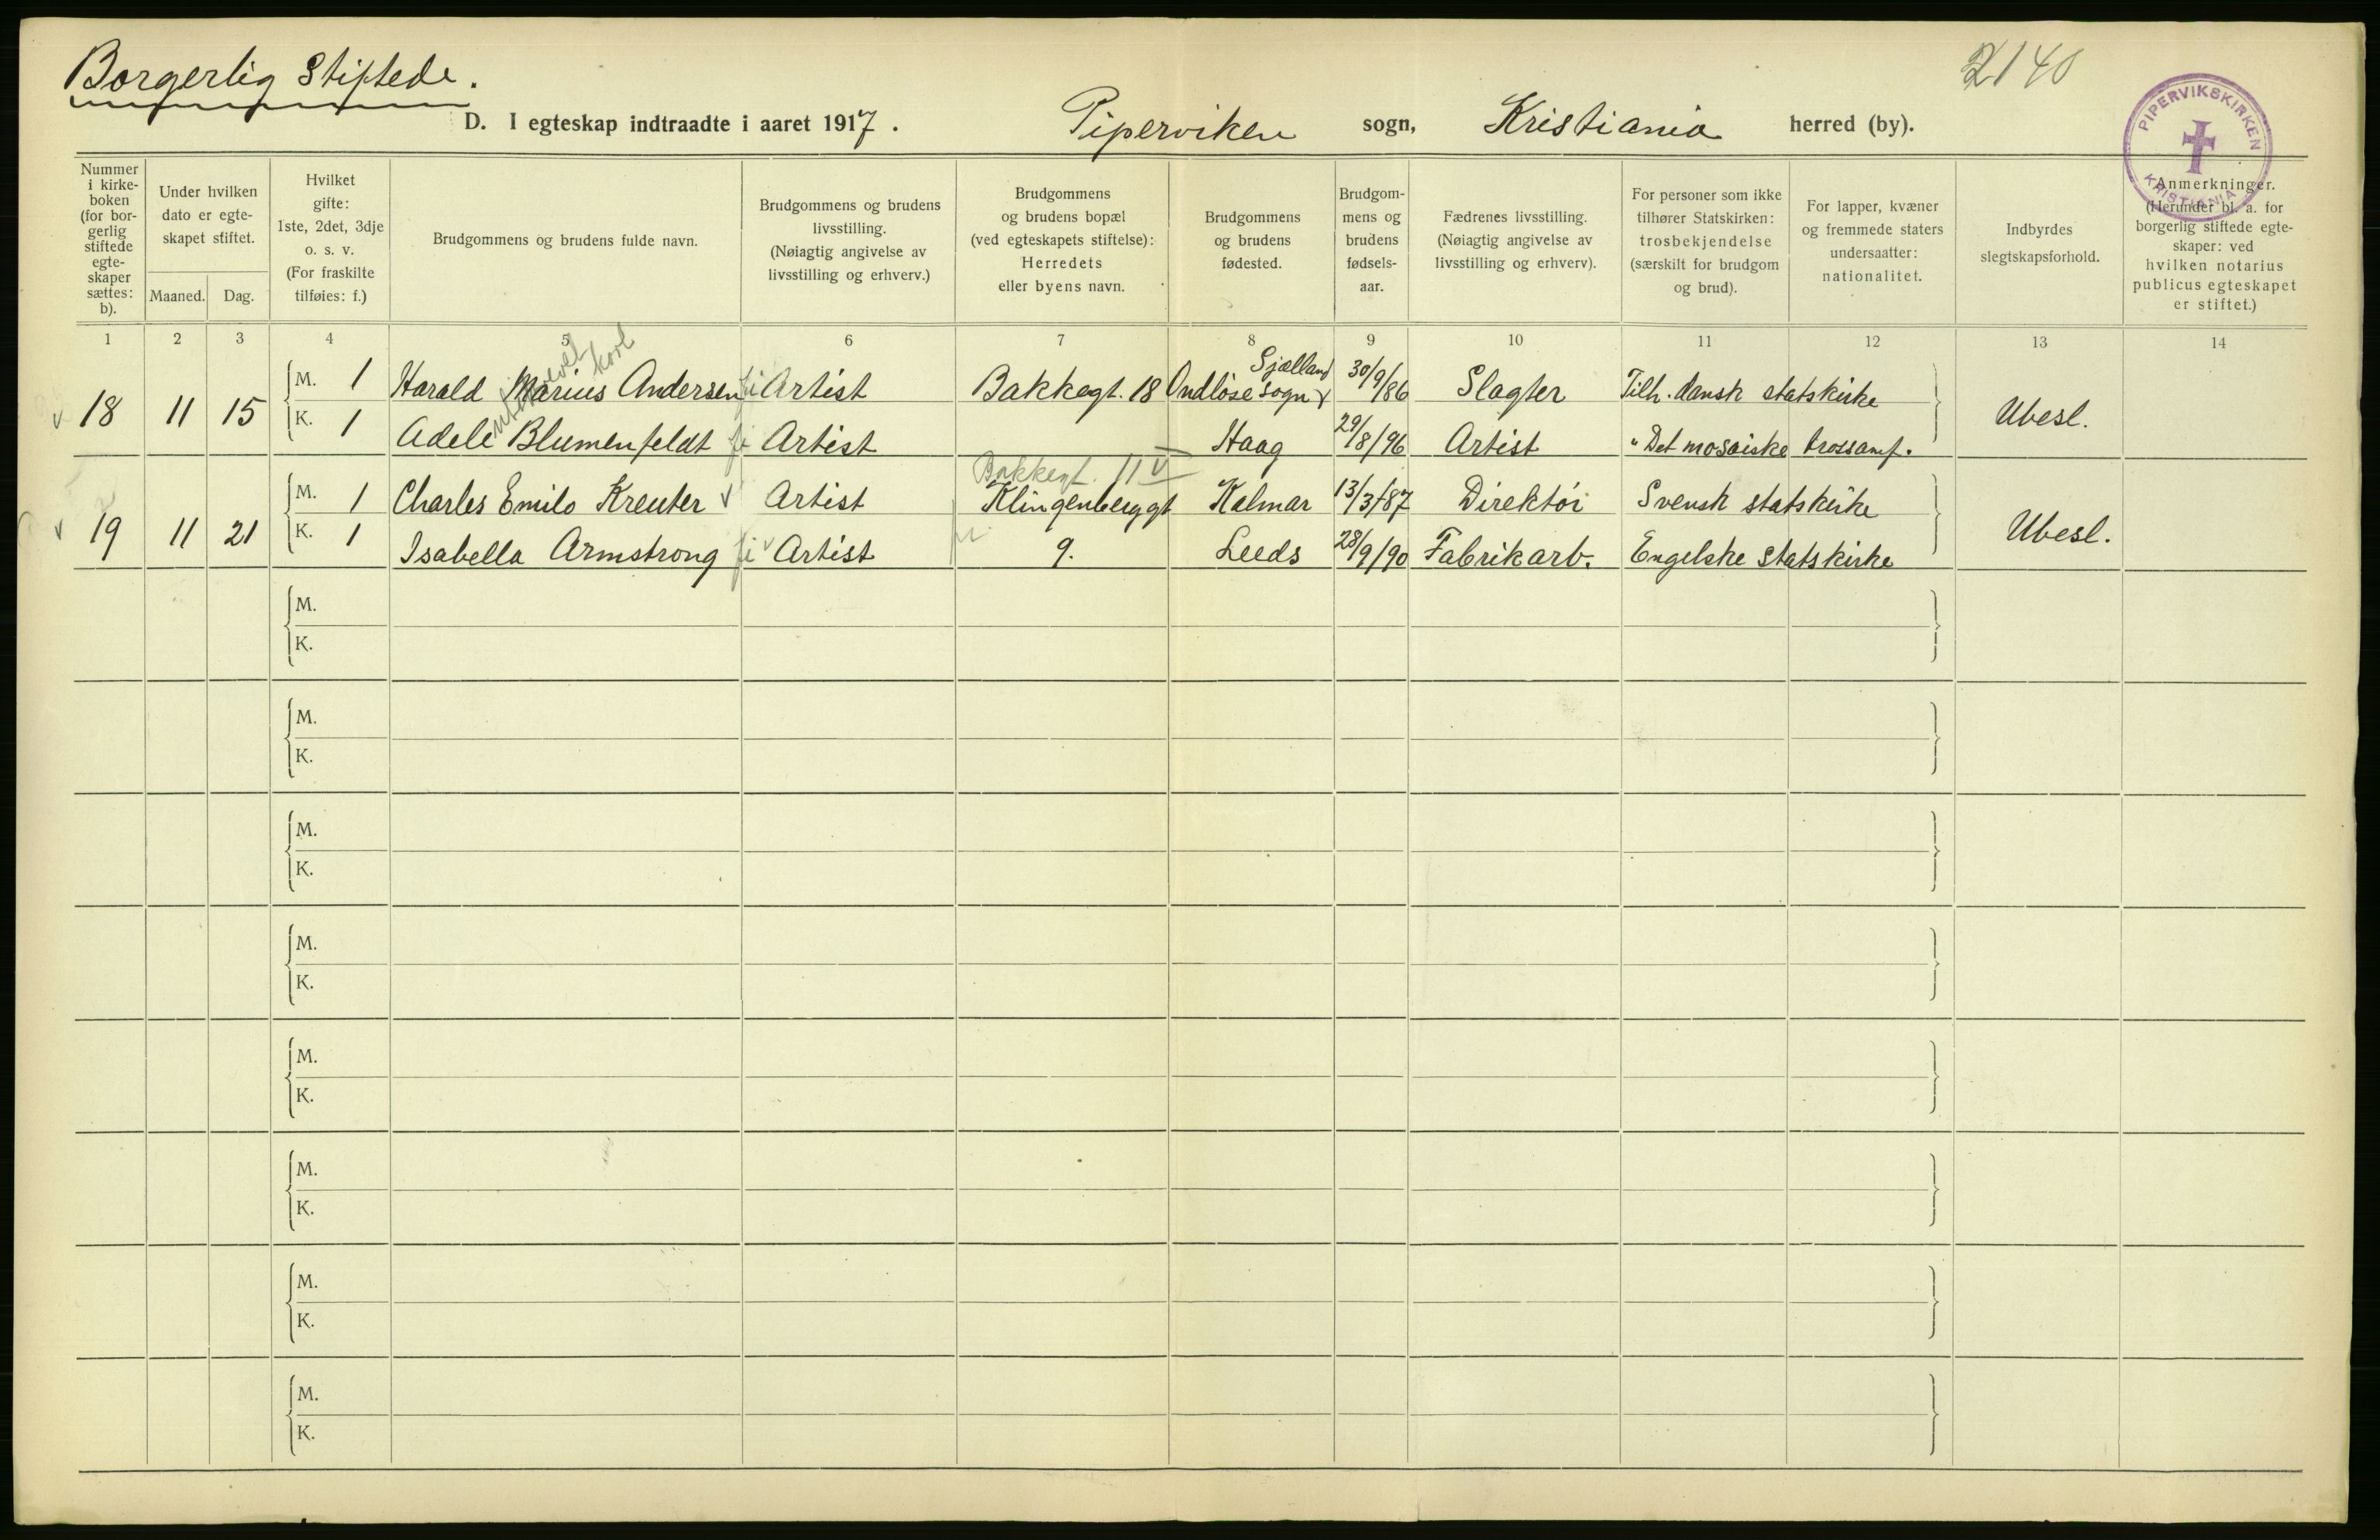 Borgerlig Stiftede.
2140
D. I egteskap indtraadte i aaret 1917. Piperviken sogn, Kristiania herred (by).
PIPERVIKSKIRKEN
KRISTIANIA
Nummer i kirke-boken (for bor-gerlig stiftede egte-skaper sættes: b).
Under hvilken dato er egte-skapet stiftet.
Maaned. Dag.
Hvilket gifte: 1ste, 2det, 3dje o. s. v. (For fraskilte tilføies: f.)
Brudgommens og brudens fulde navn.
Brudgommens og brudens livsstilling. (Nøiagtig angivelse av livsstilling og erhverv.)
Brudgommens og brudens bopæl (ved egteskapets stiftelse): Herredets eller byens navn.
Brudgommens og brudens fødested.
Brudgom-mens og brudens fødsels-aar.
Fædrenes livsstilling. (Nøiagtig angivelse av livsstilling og erhverv).
For personer som ikke tilhører Statskirken: trosbekjendelse (særskilt for brudgom og brud).
For lapper, kvæner og fremmede staters undersaatter: nationalitet.
Indbyrdes slegtskapsforhold.
Anmerkninger. (Herunder bl. a. for borgerlig stiftede egte-skaper: ved hvilken notarius publicus egteskapet er stiftet.)
1 2 3 4 5 6 7 8 9 10 11 12 13 14
18 11 15 M. 1 Harald Marius Andersen Artist Bakkegt. 18 Ondløse sogn Sjælland 30/9/86 Slagter Tilh. dansk statskirke Ubesl.
K. 1 Adele Blumenfeldt Artist — Haag 29/8/96 Artist " Det mosaiske trossamf.
Bakkegt. 11
19 11 21 M. 1 Charles Emilo Kreuter Artist Klingenberggt Kalmar 13/3/87 Direktör Svensk statskirke Ubesl.
K. 1 Isabella Armstrong Artist 9. Leeds 28/9/90 Fabrikarb. Engelske statskirke
M.
K.
M.
K.
M.
K.
M.
K.
M.
K.
M.
K.
M.
K.
M.
K.